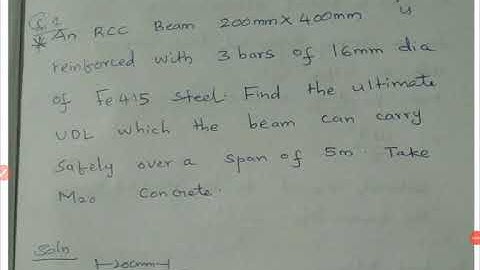 Q.1
* An RCC Beam 200mm x 400mm is
reinforced with 3 bars of 16mm dia
of Fe415 steel. Find the ultimate
UDL which the beam can carry
safely over a span of 5m. Take
M20 concrete.
Soln
200mm